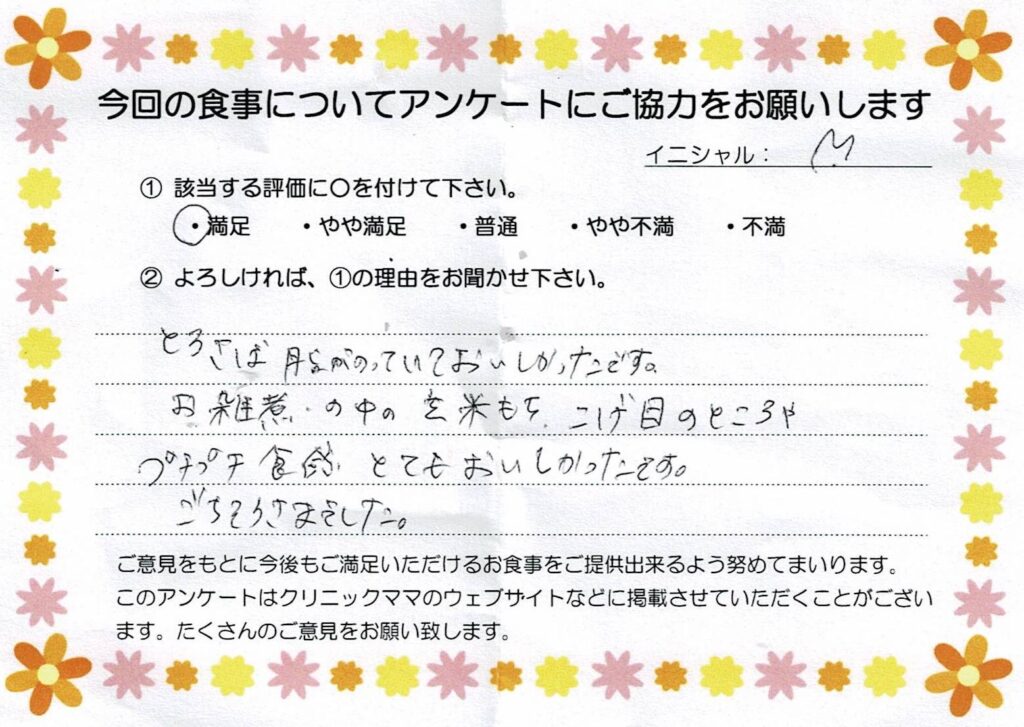 今回の食事についてアンケートにご協力をお願いします
イニシャル： M
① 該当する評価に○を付けて下さい。
・満足 ・やや満足 ・普通 ・やや不満 ・不満
② よろしければ、①の理由をお聞かせ下さい。
とろさば 脂がのっていておいしかったです。
お雑煮の中の玄米もち こげ目のところや
プチプチ食感 とてもおいしかったです。
ごちそうさまでした。
ご意見をもとに今後もご満足いただけるお食事をご提供出来るよう努めてまいります。
このアンケートはクリニックママのウェブサイトなどに掲載させていただくことがござい
ます。たくさんのご意見をお願い致します。